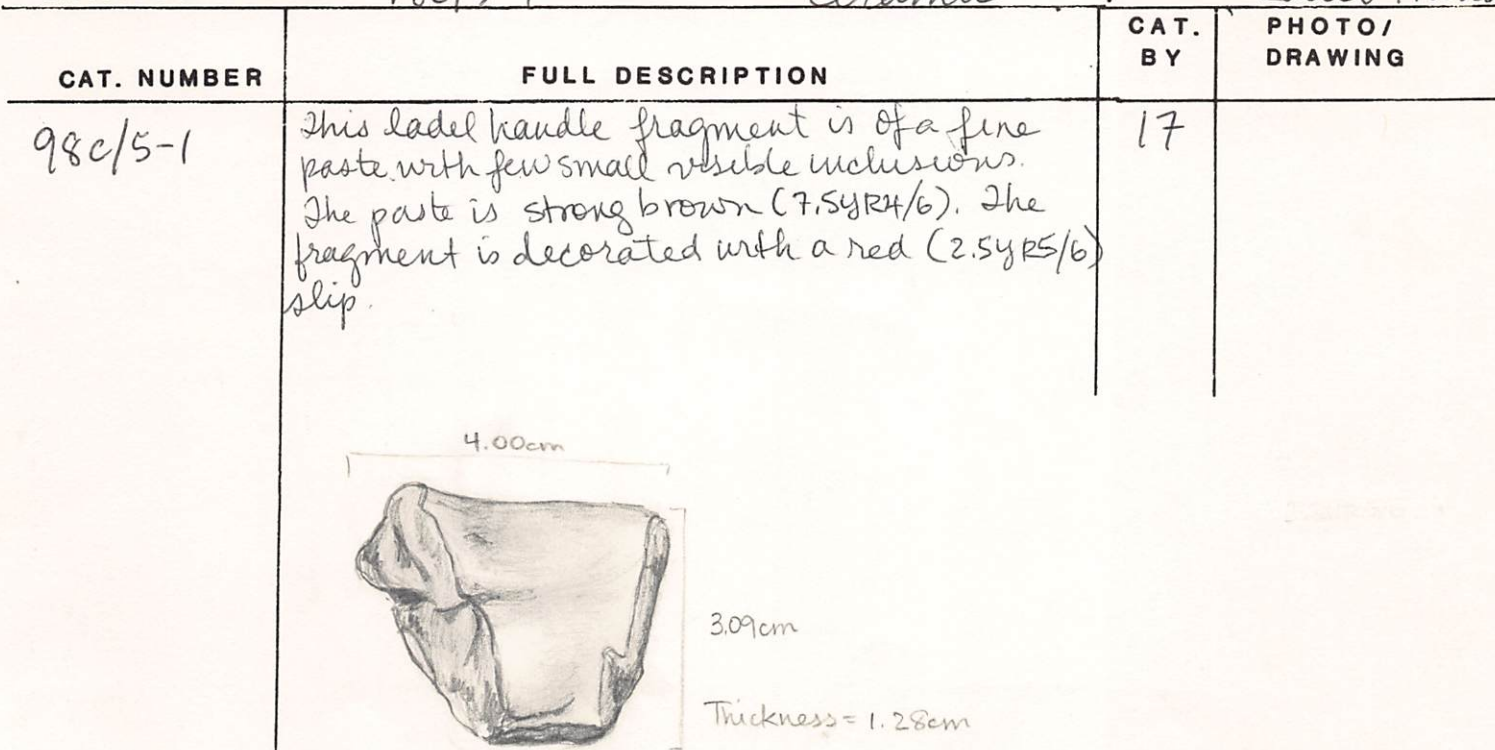 CAT. NUMBER
FULL DESCRIPTION
CAT.
BY
PHOTO/
DRAWING
98c/5-1
This ladel handle fragment is of a fine
paste with few small visible inclusions.
The paste is strong brown (7.5YR4/6). The
fragment is decorated with a red (2.5YR5/6)
slip.
17
4.00cm
3.09cm
Thickness = 1.28cm